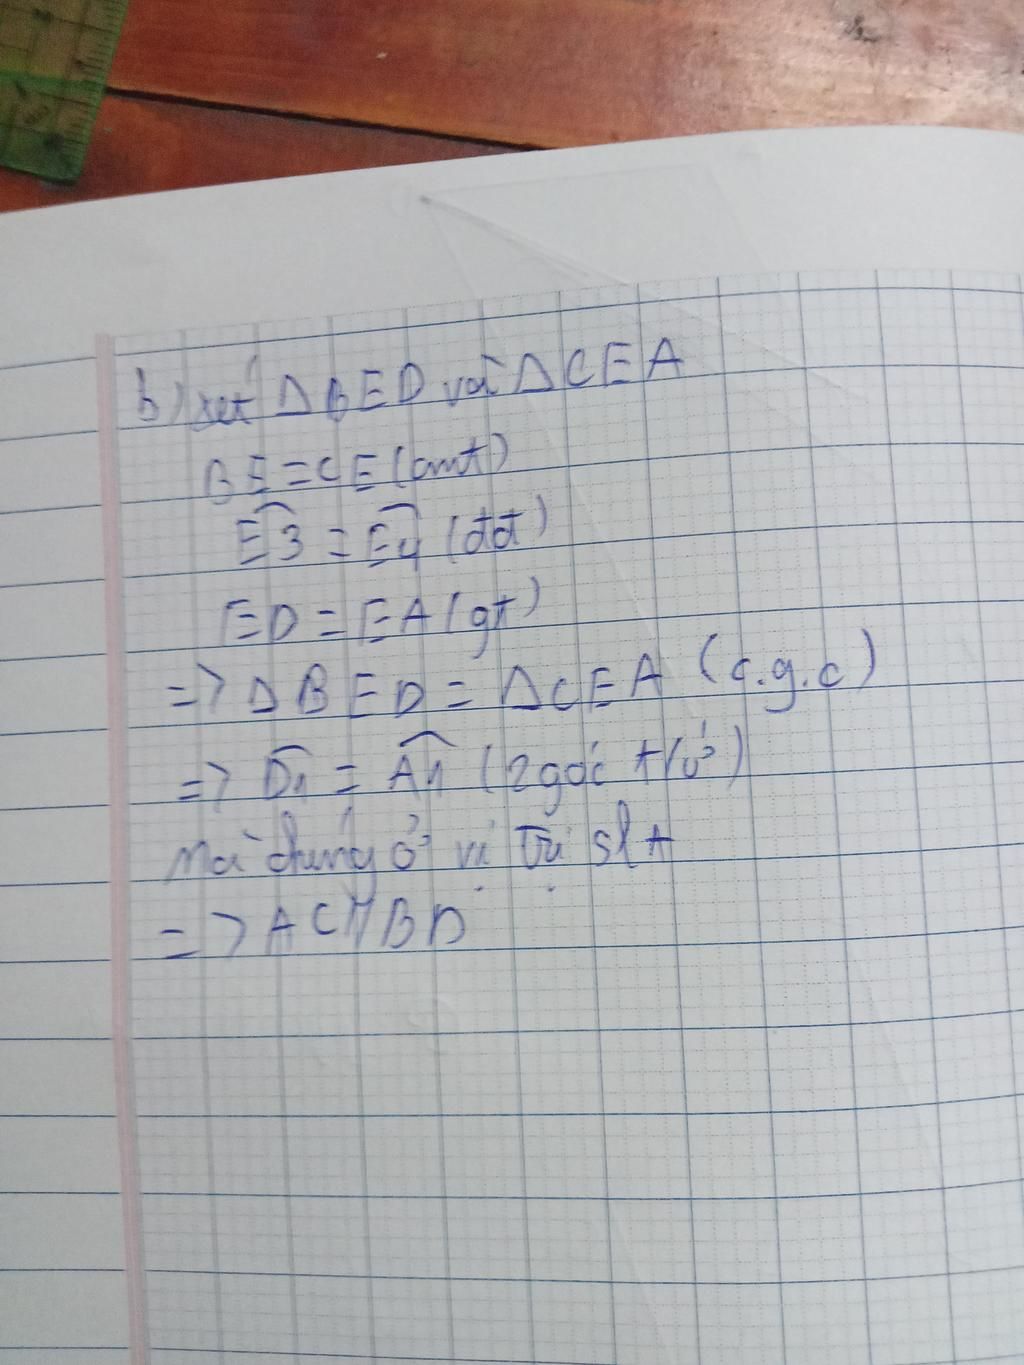 b) xét Δ BED và Δ CEA
BE = CE (cmt)
Ê3 = Ê4 (đđ)
ED = EA (gt)
=> Δ BED = Δ CEA (c.g.c)
=> D̂1 = Â1 (2 góc t/ứ)
Mà chúng ở vị trí slt
=> AC // BD